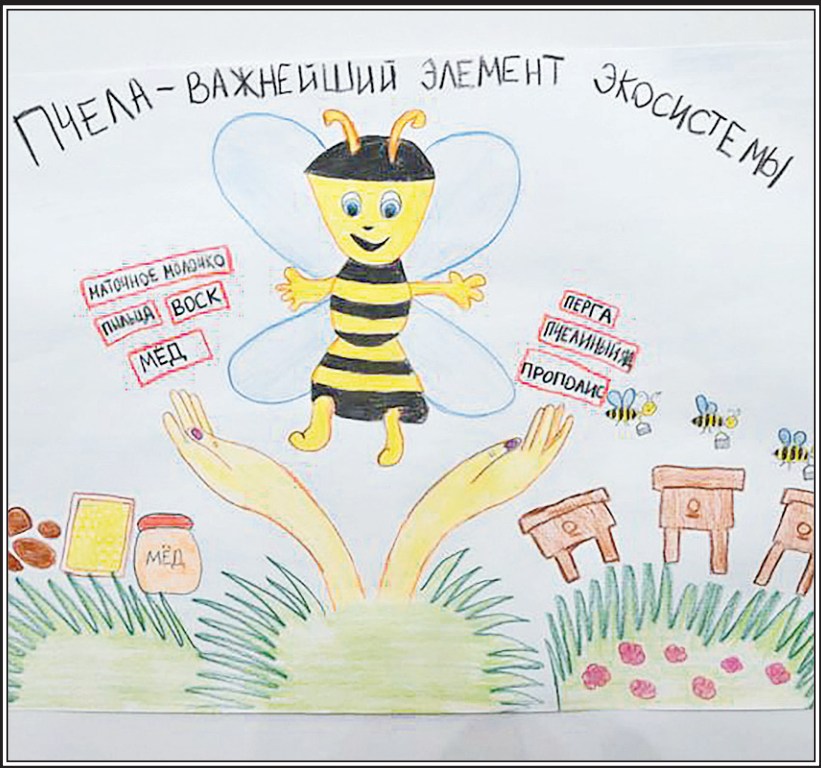 ПЧЕЛА - ВАЖНЕЙШИЙ ЭЛЕМЕНТ ЭКОСИСТЕМЫ
МАТОЧНОЕ МОЛОЧКО
ПЫЛЬЦА ВОСК
МЁД
ПЕРГА
ПЧЕЛИНЫЙ
ПРОПОЛИС
МЁД